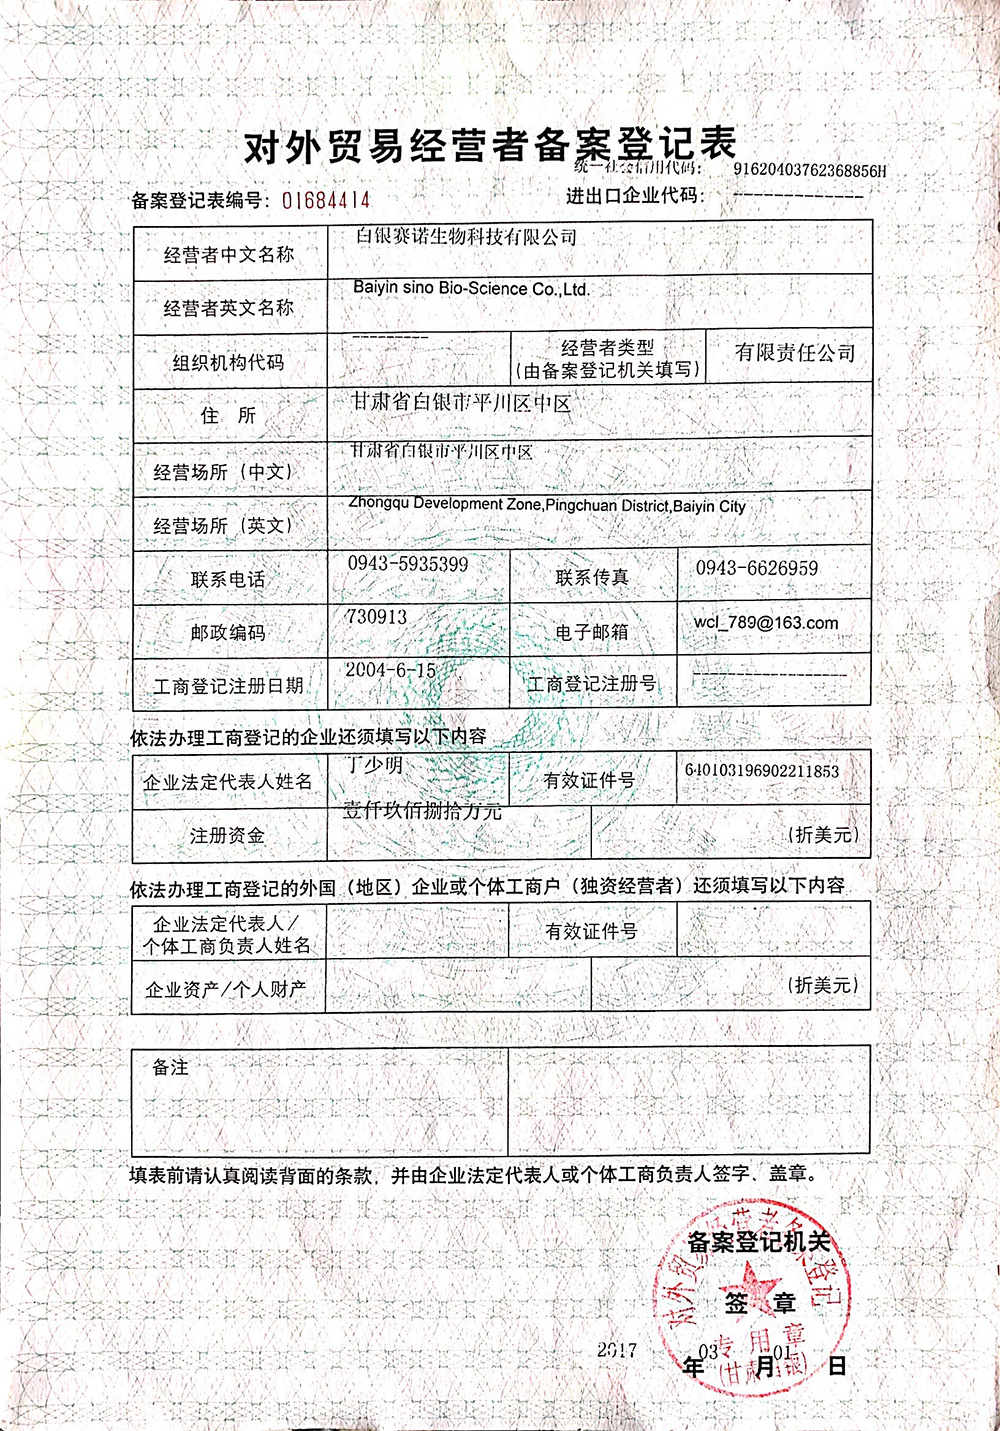 对外贸易经营者备案登记表
统一社会信用代码： 91620403762368856H
备案登记表编号：01684414 进出口企业代码： -------------
经营者中文名称 白银赛诺生物科技有限公司
经营者英文名称 Baiyin sino Bio-Science Co.,Ltd.
组织机构代码 --------- 经营者类型 (由备案登记机关填写) 有限责任公司
住 所 甘肃省白银市平川区中区
经营场所（中文） 甘肃省白银市平川区中区
经营场所（英文） Zhongqu Development Zone,Pingchuan District,Baiyin City
联系电话 0943-5935399 联系传真 0943-6626959
邮政编码 730913 电子邮箱 wcl_789@163.com
工商登记注册日期 2004-6-15 工商登记注册号 ------------------
依法办理工商登记的企业还须填写以下内容
企业法定代表人姓名 丁少明 有效证件号 640103196902211853
注册资金 壹仟玖佰捌拾万元 (折美元)
依法办理工商登记的外国（地区）企业或个体工商户（独资经营者）还须填写以下内容
企业法定代表人/
个体工商负责人姓名 有效证件号
企业资产/个人财产 (折美元)
备注
填表前请认真阅读背面的条款，并由企业法定代表人或个体工商负责人签字、盖章。
对外贸易经营者备案登记
备案登记机关
签 章
专用章
2017 年 03 月 01 日
(甘肃白银)